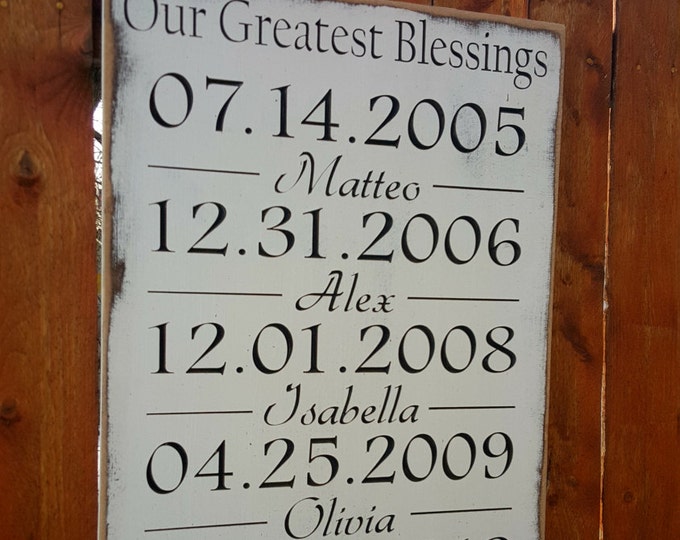 Our Greatest Blessings
07.14.2005
Matteo
12.31.2006
Alex
12.01.2008
Isabella
04.25.2009
Olivia